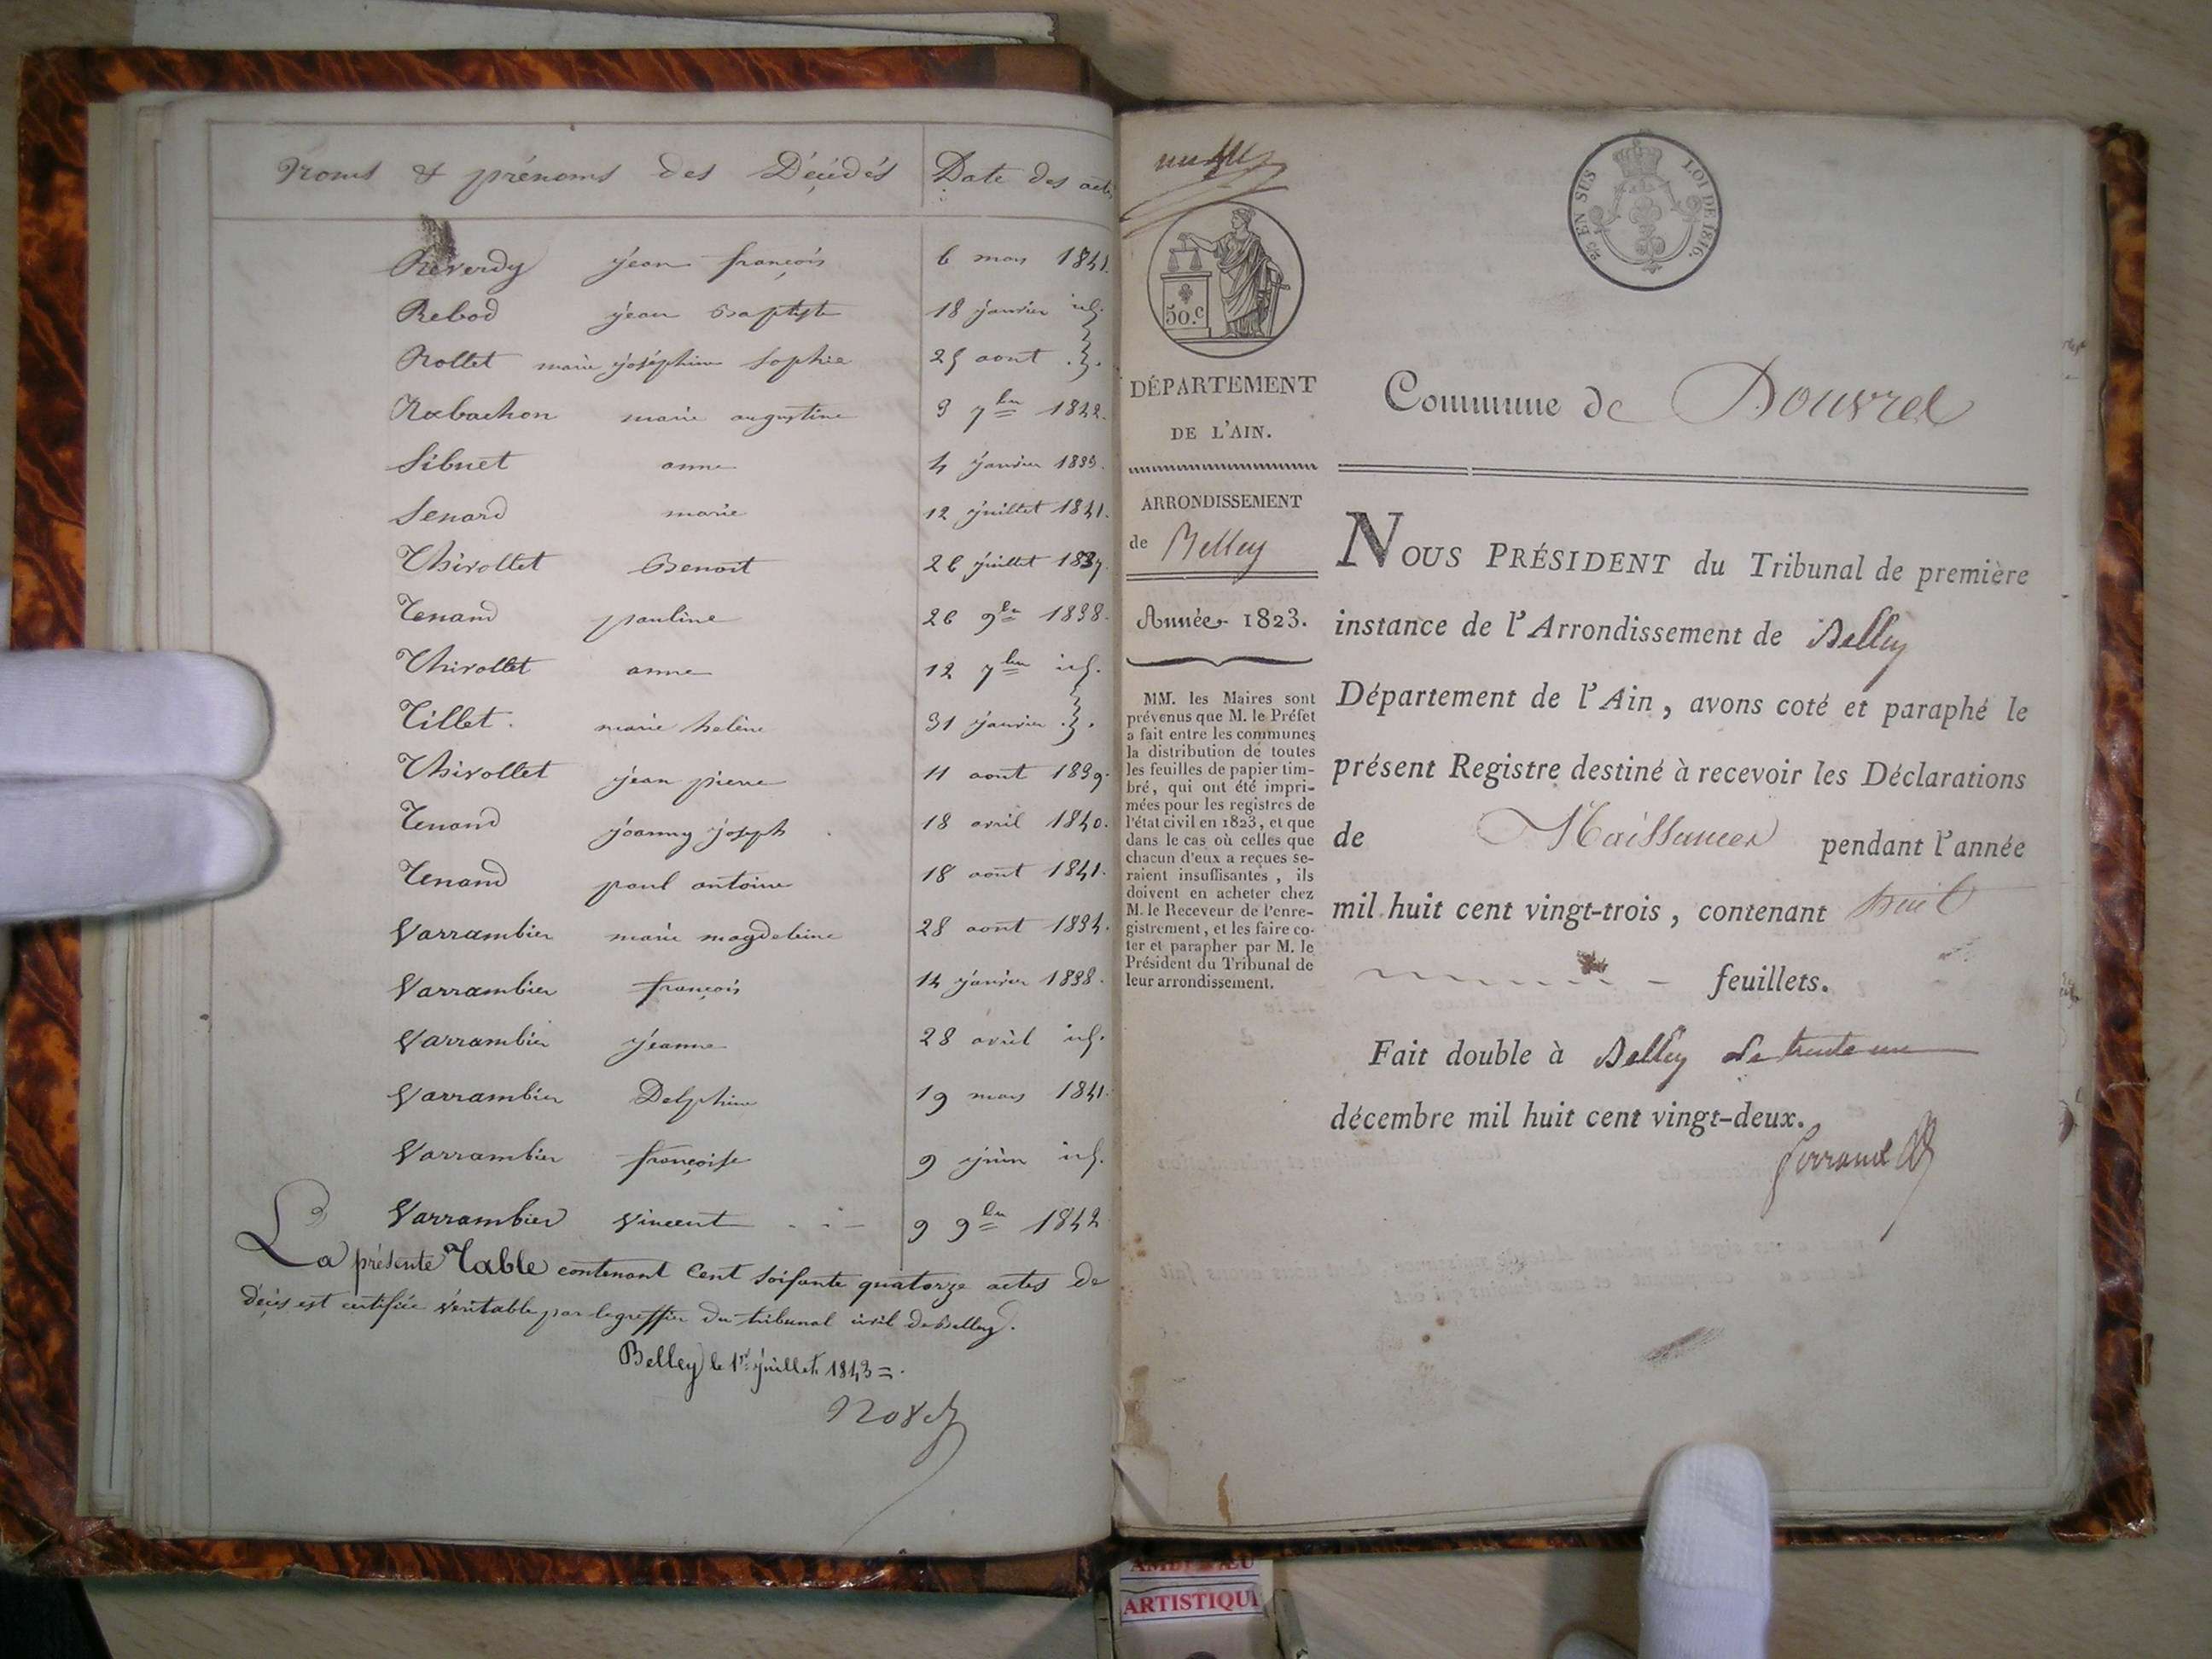 Noms & prénoms des Décédés Date des actes
Reverdy jean françois 6 mars 1841.
Rebod jean Baptiste 18 janvier id.
Rollet marie joséphine Sophie 25 aout id.
Rabachon marie augustine 3 7bre 1842.
Sibuet anne 4 janvier 1833.
Senard marie 12 juillet 1841.
Thivollet Benoit 26 juillet 1837.
Tenand pauline 26 9bre 1838.
Thivollet anne 12 7bre id.
Tillet. marie helène 31 janvier
Thivollet jean pierre 11 aout 1839.
Tenand joanny joseph 18 avril 1840.
Tenand paul antoine 18 aout 1841.
Varrambier marie magdeleine 28 aout 1834.
Varrambier françois 14 janvier 1838.
Varrambier jeanne 28 avril id.
Varrambier Delphine 19 mars 1841.
Varrambier françoise 9 juin id.
Varrambier Vincent 9 9bre 1842
La présente Table contenant Cent soixante quatorze actes de
décès est certifiée véritable par le greffier du tribunal civil de Belley.
Belley le 1er juillet 1843 =.
25 EN SUS LOI DE 1816.
50.c
DÉPARTEMENT
DE L'AIN.
ARRONDISSEMENT
de Belley
Année 1823.
MM. les Maires sont
prévenus que M. le Préfet
a fait entre les communes
la distribution de toutes
les feuilles de papier tim-
bré, qui ont été impri-
mées pour les registres de
l'état civil en 1823, et que
dans le cas où celles que
chacun d'eux a reçues se-
raient insuffisantes, ils
doivent en acheter chez
M. le Receveur de l'enre-
gistrement, et les faire co-
ter et parapher par M. le
Président du Tribunal de
leur arrondissement.
Commune de Douvres
NOUS PRÉSIDENT du Tribunal de première
instance de l'Arrondissement de Belley
Département de l'Ain, avons coté et paraphé le
présent Registre destiné à recevoir les Déclarations
de Naissances pendant l'année
mil huit cent vingt-trois, contenant huit
feuillets.
Fait double à Belley le trente un
décembre mil huit cent vingt-deux.
ARTISTIQU